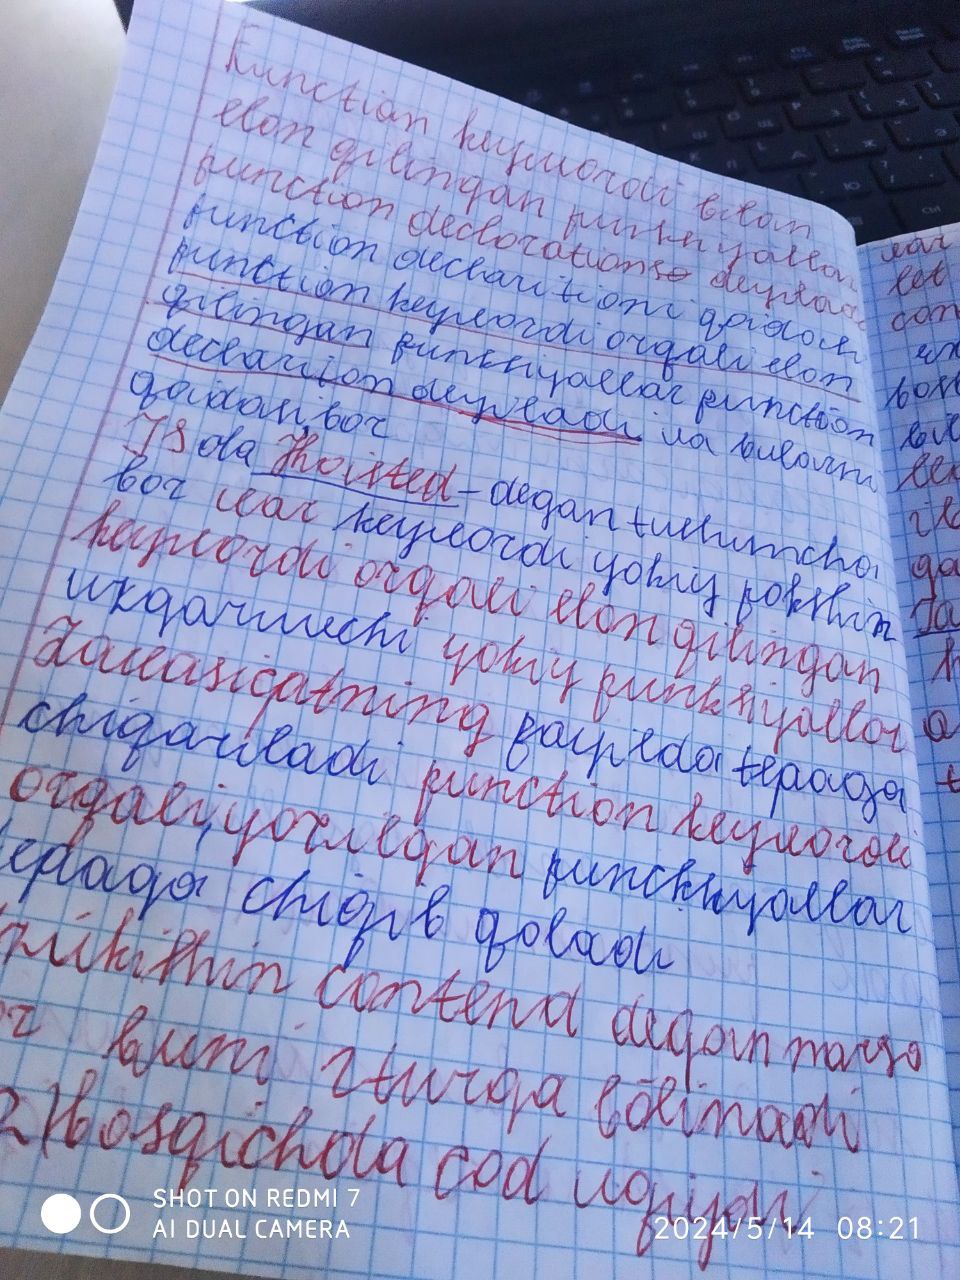 Function keywordi bilan
elon qilingan funksiyallar
function declorations deyiladi
function declaritioni qoidasi
function keywordi orqali elon
qilingan funksiyallar function
declarition deyiladi va bularni
qoidasi bor
JS da Hoisted - degan tushuncha
bor var keywordi yokiy
keywordi orqali elon qilingan
uzgaruvchi yokiy funksiyallar
qatning paytda tepaga
chiqariladi function keywordi
orqali yozilgan funckiyallar
epaga chiqib qoladi
contend degan narsa
buni 2 turga bõlinadi
2) bosqichda cod uqiydi
var
let
con
SHOT ON REDMI 7
AI DUAL CAMERA
2024/5/14 08:21